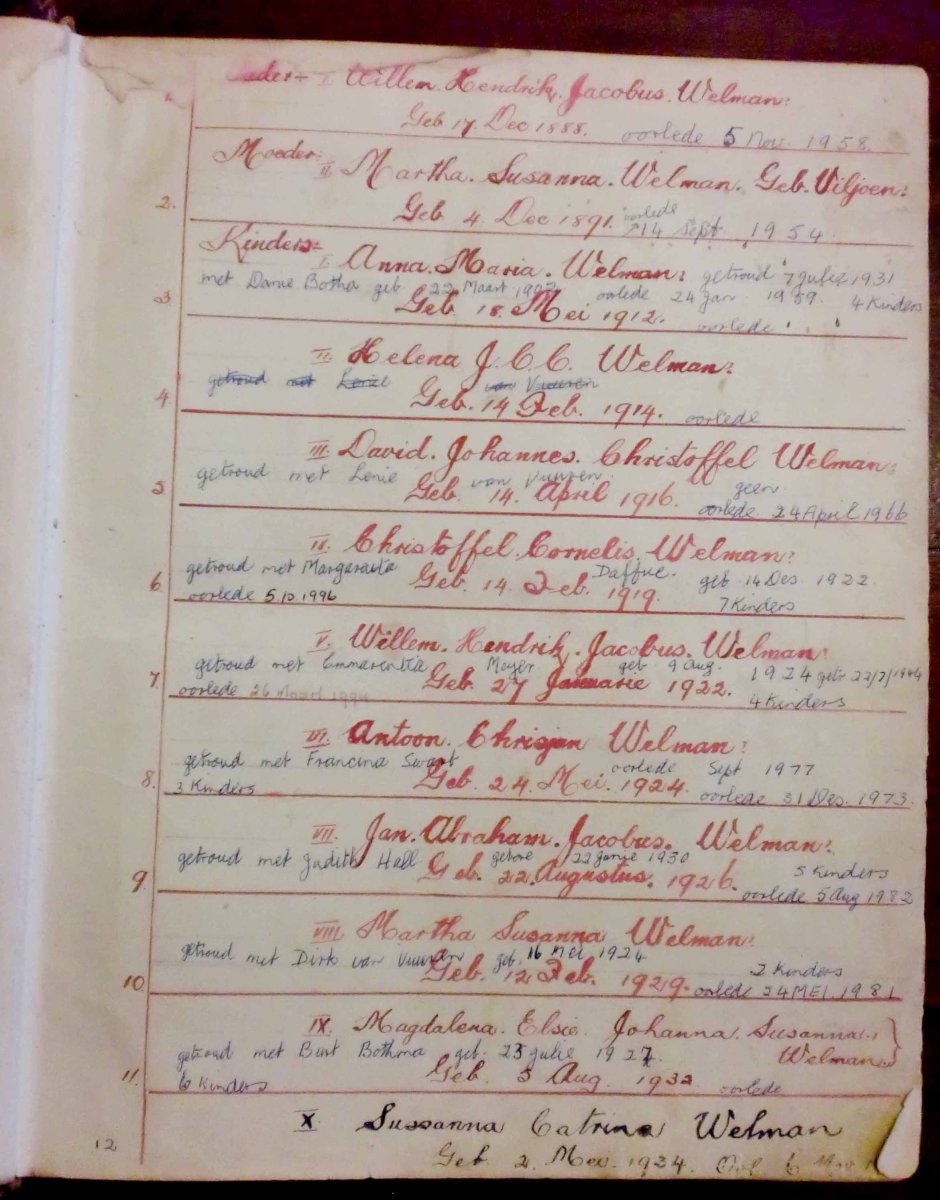 1. Vader I. Willem Hendrik Jacobus Welman:
Geb 17 Dec 1888. oorlede 5 Nov. 1958.
Moeder: II. Martha Susanna Welman. Geb. Viljoen:
2. Geb 4 Dec 1891. oorlede 14 Sept 1954.
Kinders:
I. Anna Maria Welman: getroud 7 Julie 1931
met Danie Botha geb 22 Maart 1902 oorlede 24 Jan. 1959. 4 Kinders
3 Geb 18 Mei 1912. oorlede
II. Helena J. C. C. Welman:
getroud met Lenie van Vuuren
4. Geb. 14 Feb. 1914. oorlede
III. David Johannes Christoffel Welman:
getroud met Lenie van Vuuren geen
5. Geb. 14. April 1916. oorlede 24 April 1966
IV. Christoffel Cornelis Welman:
getroud met Margaraita Daffue. geb 14 Des. 1922
6. oorlede 5.10.1996 Geb 14. Feb. 1919. 7 Kinders
V. Willem Hendrik Jacobus Welman:
getroud met Emmarentia Meyer geb 9 Aug. 1924 getr 22/7/1944
7. oorlede 26 Maart Geb. 27 Januarie 1922. 4 Kinders
VI. Antoon Chrisjan Welman:
getroud met Francina Swart oorlede Sept 1977
8. 3 Kinders Geb. 24. Mei. 1924. oorlede 31 Des. 1973.
VII. Jan Abraham Jacobus. Welman:
getroud met Judith Hall gebore 22 Junie 1930 5 Kinders
9. Geb. 22. Augustus. 1926. oorlede 5 Aug 1982
VIII. Martha Susanna Welman:
getroud met Dirk van Vuuren geb. 16 Mei 1924 2 Kinders
10. Geb. 12 Feb. 1929. oorlede 24 MEI. 1981
IX. Magdalena Elsie Johanna Susanna
Welman
getroud met Burt Bothma geb. 23 Julie 1927.
11. 6 Kinders Geb. 5 Aug 1932 oorlede
X. Sussanna Catrina Welman
12 Geb 2. Mei. 1934. 6